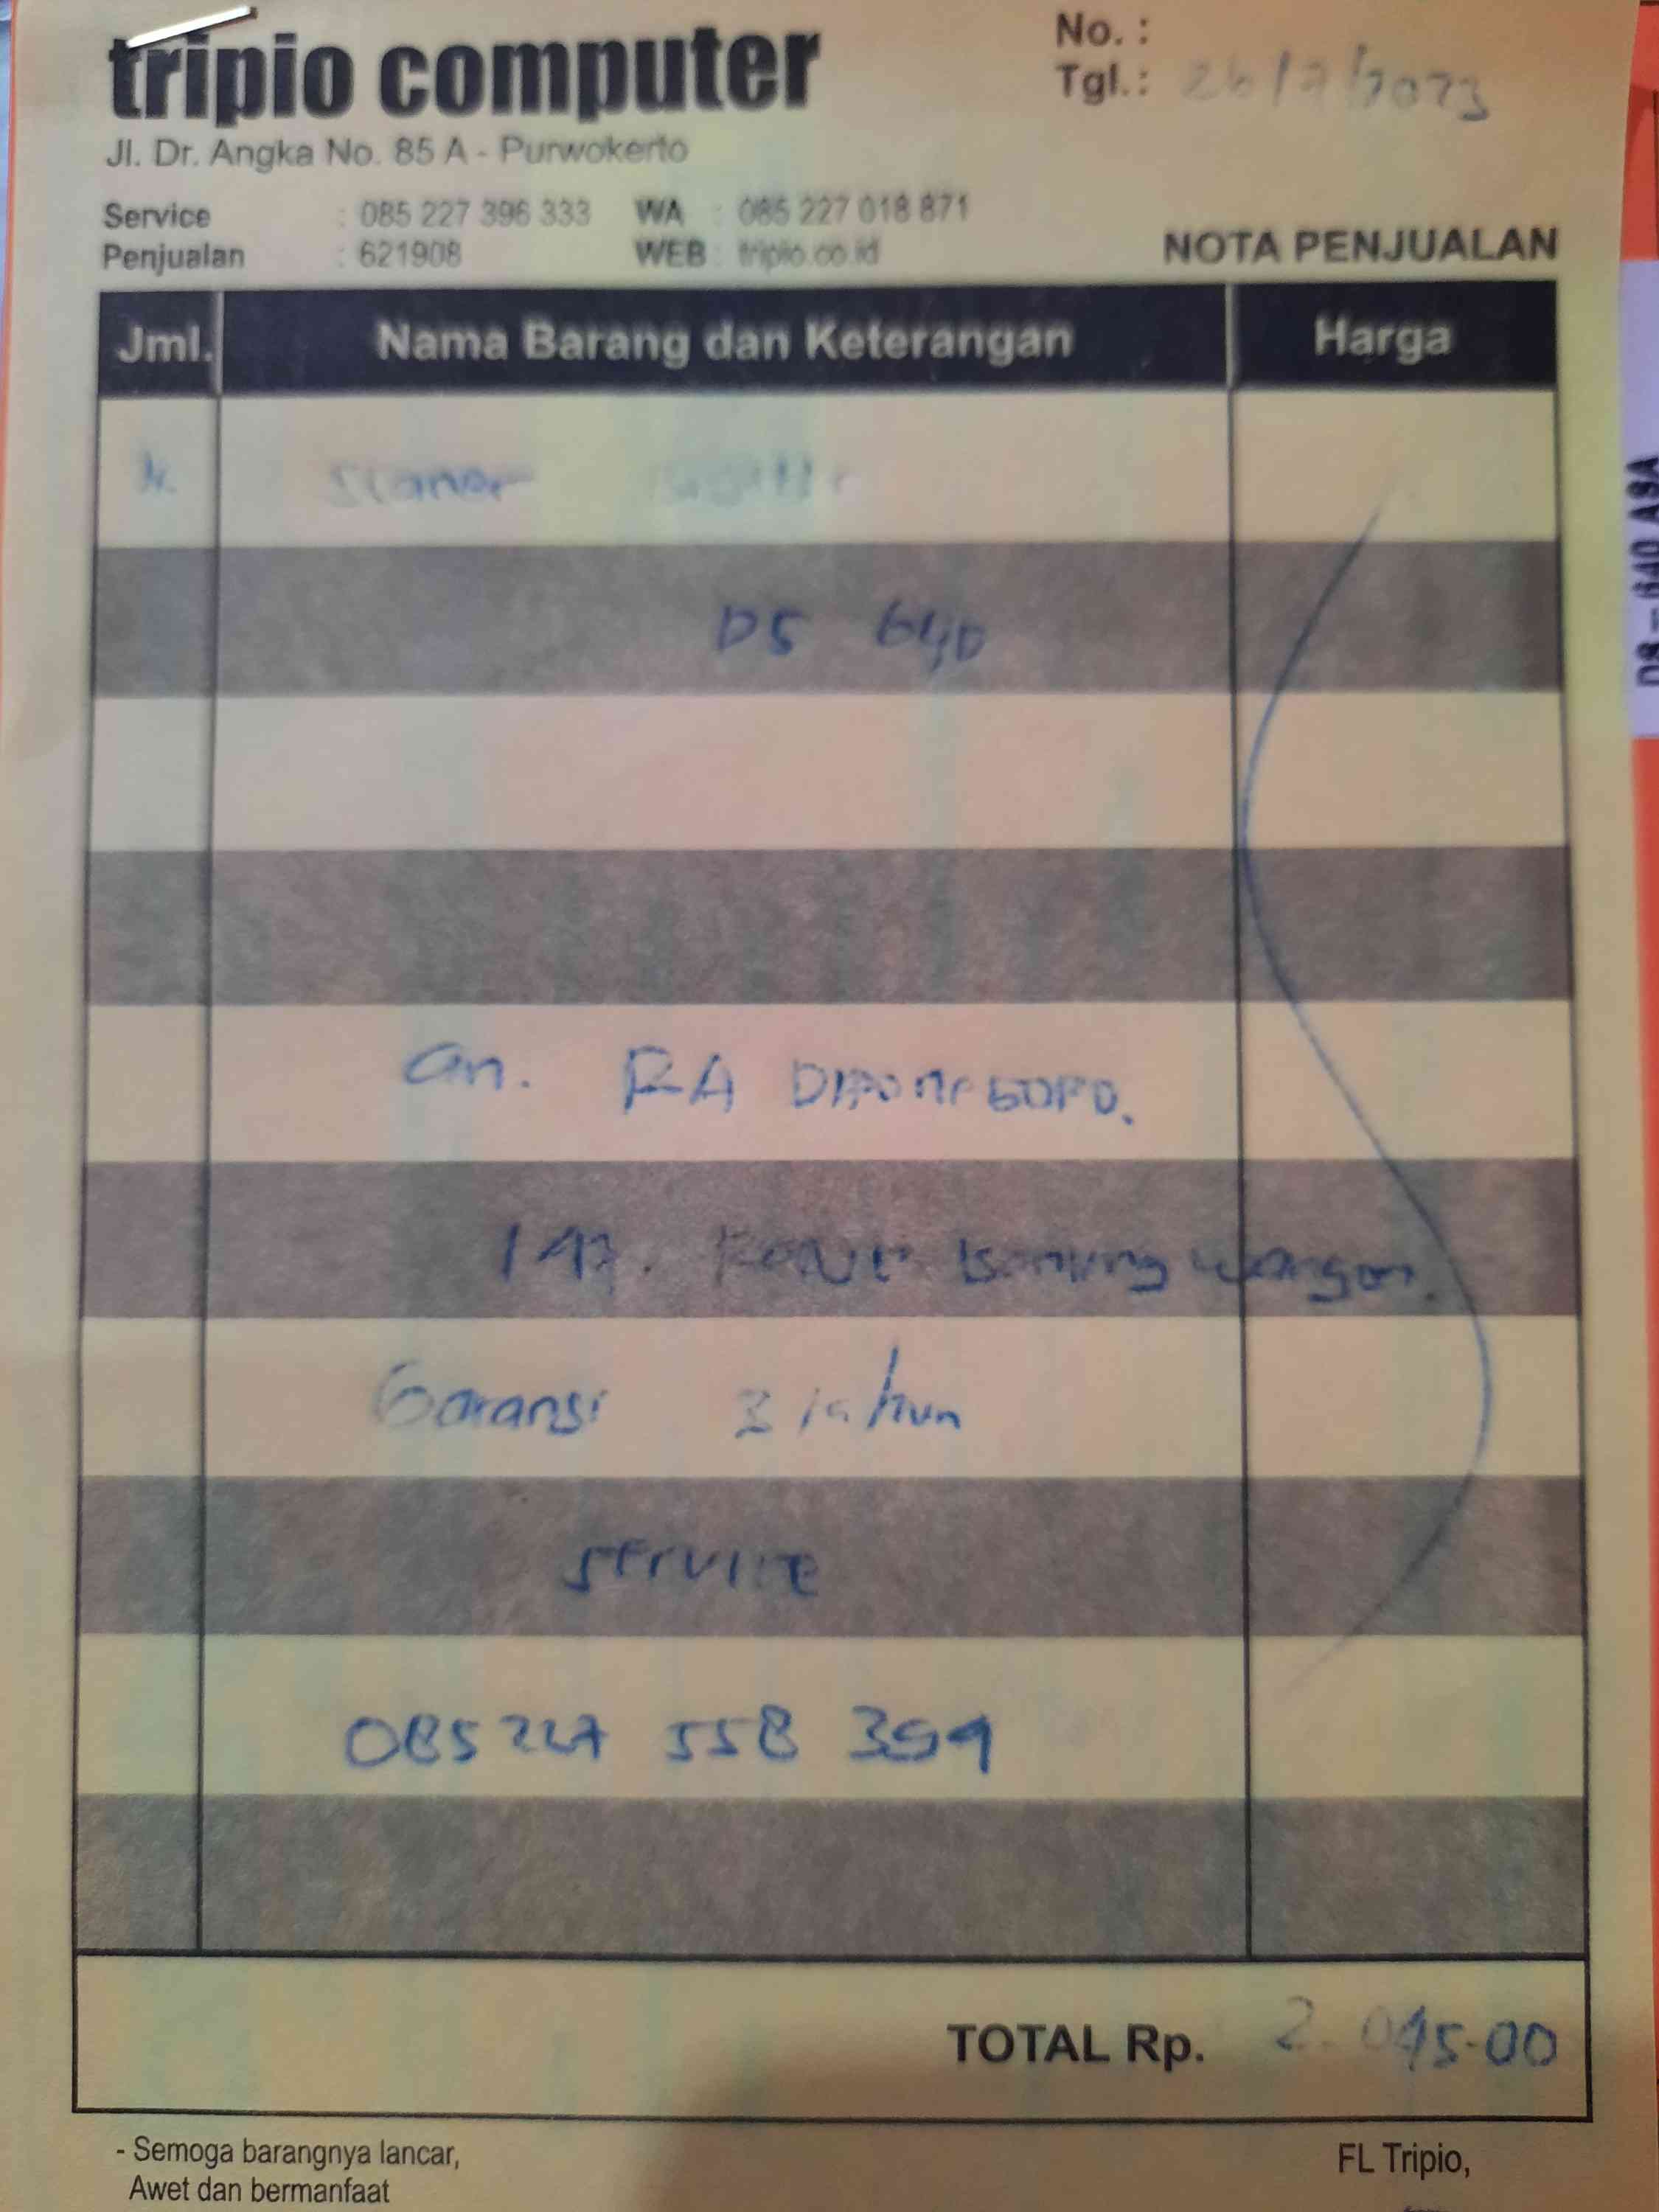 tripio computer
No. :
Tgl.: 26/7/2023
Jl. Dr. Angka No. 85 A - Purwokerto
Service : 085 227 396 333 WA : 085 227 018 871
Penjualan : 621908 WEB : tripio.co.id
NOTA PENJUALAN
Jml. Nama Barang dan Keterangan Harga
Scaner
DS 640
an. RA DIPONEGORO.
147. Karang wangon.
Garansi 3 tahun
service
085227 558 399
TOTAL Rp. 2.095.00
- Semoga barangnya lancar,
Awet dan bermanfaat
FL Tripio,
DS - 640 ASA